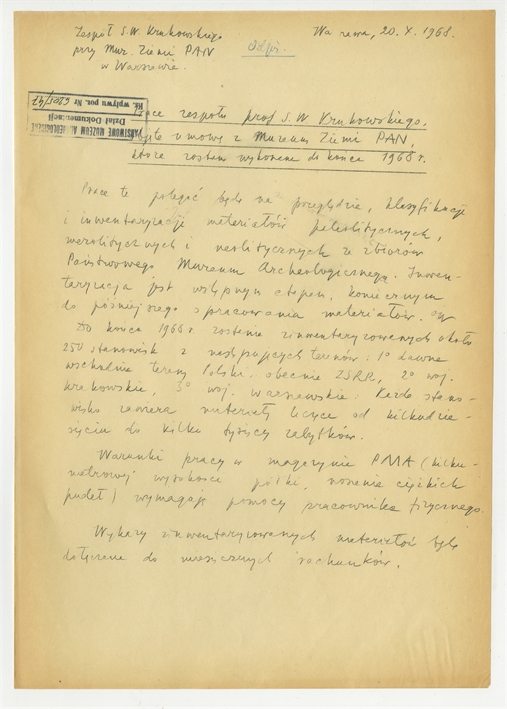 Zespół S.W Krukowskiego
przy Muz. Ziemi PAN
w Warszawie.
Warszawa, 20.X.1968.
Odpis.
PAŃSTWOWE MUZEUM ARCHEOLOGICZNE
Dział Dokumentacji
Nr. wpływu poz. Nr
Prace zespołu prof S.W Krukowskiego,
objęte umową z Muzeum Ziemi PAN,
które zostaną wykonane do końca 1968 r.
Prace te polegać będą na przeglądzie, klasyfikacji
i inwentaryzacji materiałów paleolitycznych,
mezolitycznych i neolitycznych ze zbiorów
Państwowego Muzeum Archeologicznego. Inwen-
taryzacja jest wstępnym etapem, koniecznym
do późniejszego opracowania materiałów.
Do końca 1968 r zostanie zinwentaryzowanych około
250 stanowisk z następujących terenów: 1° dawne
wschodnie tereny Polski, obecnie ZSRR, 2° woj.
krakowskie, 3° woj. warszawskie. Każde stano-
wisko zawiera materiały liczące od kilkudzie-
sięciu do kilku tysięcy zabytków.
Warunki pracy w magazynie PMA (kilku-
metrowej wysokości półki, noszenie ciężkich
pudeł) wymagają pomocy pracownika fizycznego.
Wykazy zinwentaryzowanych materiałów będą
dołączane do miesięcznych rachunków.